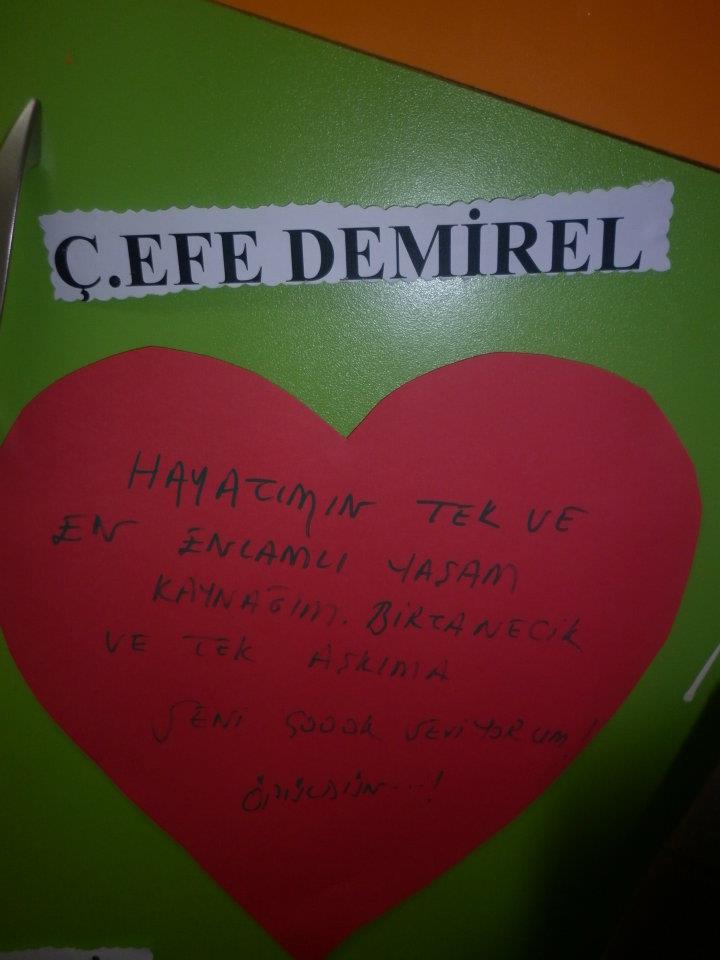 Ç.EFE DEMİREL
HAYATIMIN TEK VE
EN ENLAMLI YAŞAM
KAYNAĞIM. BİRTANECİK
VE TEK AŞKIMA
SENİ ÇOOOK SEVİYORUM!
ÖPÜLDÜN...!